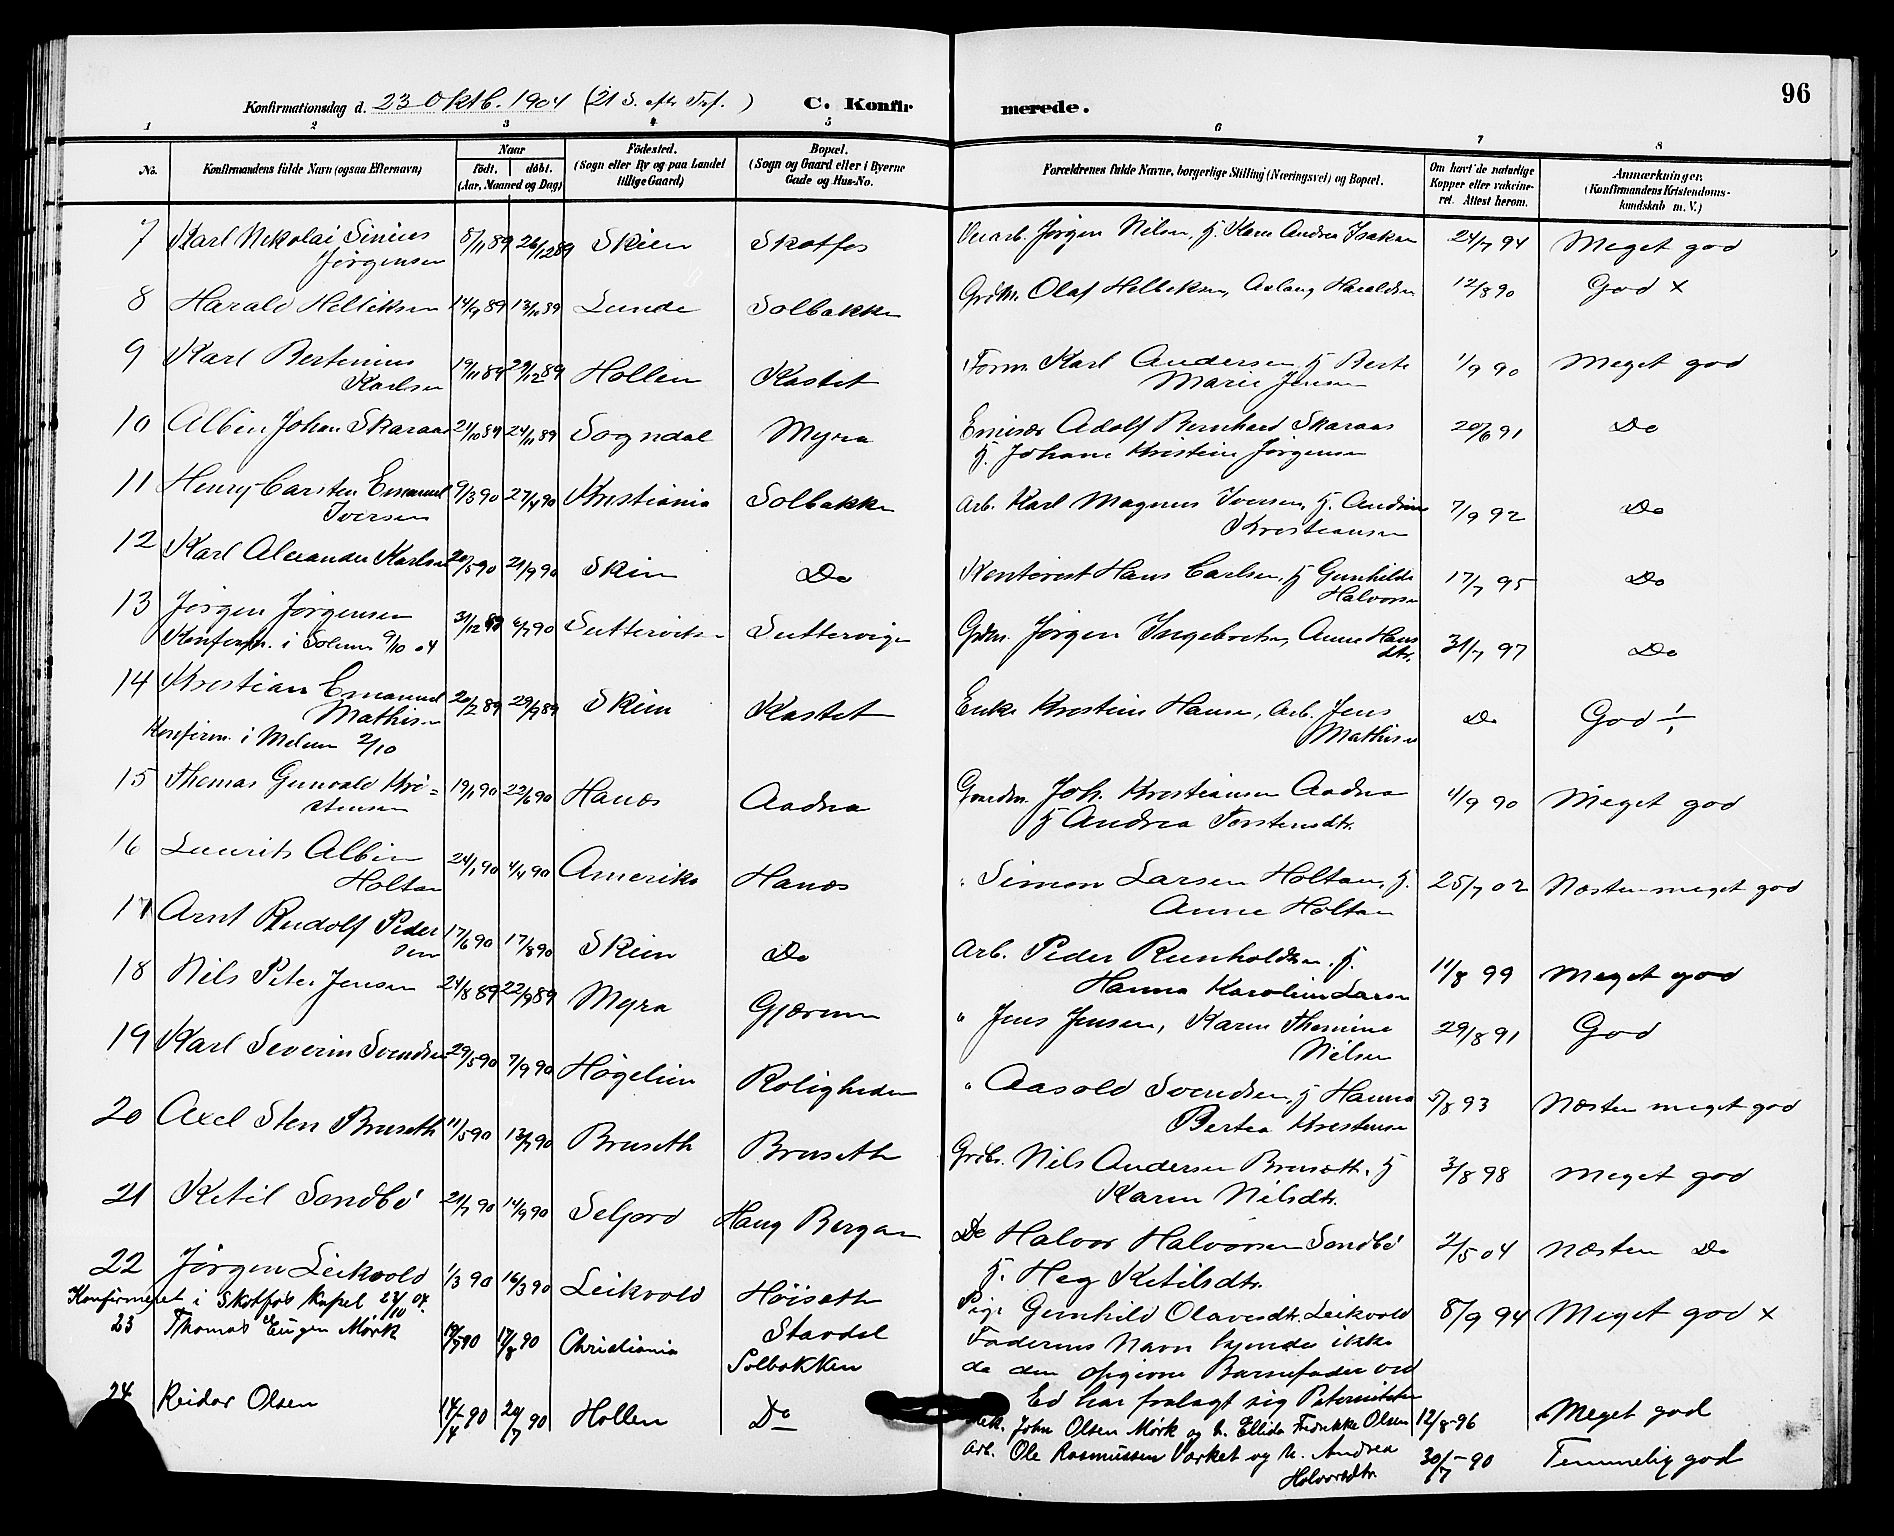 96
Konfirmationsdag d. 23 Oktb. 1904 (21 S. efter Tref. ) C. Konfirmerede.
1 2 3 4 5 6 7 8
No. Konfirmandens fulde Navn (ogsaa Efternavn) Naar født. døbt. (Aar, Maaned og Dag) Fødested. (Sogn eller By og paa Landet tillige Gaard) Bopæl. (Sogn og Gaard eller i Byerne Gade og Hus-No. Forældrenes fulde Navne, borgerlige Stilling (Næringsvei) og Bopæl. Om havt de naturlige Kopper eller vakcineret. Attest herom. Anmærkninger. (Konfirmandens Kristendomskundskab m. V.)
7 Karl Nikolai Sinius Jørgensen 8/11 89 26/12 89 Skien Skotfos Jørgen Nilsen, H. Karen Andrea Isaksen 24/7 94 Meget god
8 Harald Helliksen 14/9 89 13/10 89 Lunde Solbakken Grdbr. Olaf Helliksen, Aslaug Haraldsen 12/8 90 God x
9 Karl Bertinius Karlsen 19/11 89 29/12 89 Hollen Kastet Form. Karl Andersen, H Berte Marie Jensen 1/9 90 Meget god
10 Albin Johan Skaraas 21/10 89 24/11 89 Sogndal Myra Emisær Adolf Bernhard Skaraas H. Johane Kristine Jørgensen 20/6 91 Do
11 Henry Carsten Emanuel Iversen 9/3 90 27/4 90 Kristiania Solbakken Arb. Karl Magnus Iversen, H. Andrine Kristiansen 7/9 92 Do
12 Karl Alexander Karlsen 20/5 90 21/9 90 Skien Do Kontorist Hans Carlsen, H Gunhilde Halvorsen 17/7 95 Do
13 Jørgen Jørgensen 31/12 89 6/7 90 Suttervik Suttervigen Grdbr. Jørgen Ingebretsen, Anne Hansdtr. 31/7 97 Do
Konfirm. i Solum 9/10 04
14 Kristian Emanuel Mathisen 20/2 89 29/9 89 Skien Kastet Enke Kristine Hansen, Arb. Jens Mathisen Do God
Konfirm. i Melum 2/10
15 Thomas Gunvald Kristensen 19/1 90 22/6 90 Hanæs Aadna Gaardm. Joh. Kristiansen Aadna H Andrea Torstensdtr. 4/9 90 Meget god
16 Laurits Albin Holtan 24/1 90 4/4 90 Amerika Hanæs Simon Larsen Holtan, H. Anne Holtan 25/7 02 Næsten meget god
17 Arnt Rudolf Pedersen 17/6 90 17/8 90 Skien Do Arb. Peder Reinholdsen, H. Hanna Karoline Larsen 11/8 99 Meget god
18 Nils Peter Jensen 24/8 89 22/9 89 Myra Gjærum " Jens Jensen, Karen Thomine Nilsen 29/8 91 God
19 Karl Severin Svendsen 29/5 90 7/9 90 Høgelien Roligheden " Aasold Svendsen, H Hanna Bertea Kristensen 5/8 93 Næsten meget god
20 Axel Sten Bruseth 11/5 90 13/7 90 Bruseth Bruseth Grdbr. Nils Andersen Bruseth, H Karen Nilsdtr. 3/8 98 Meget god
21 Ketil Sandbø 21/7 90 14/9 90 Seljord Haug Bergan Do Halvor Halvorsen Sandbø H. Heg Ketilsdtr. 2/5 04 Næsten Do
22 Jørgen Leikvold 1/3 90 16/3 90 Leikvold Høiseth Pige Gunhild Olavesdtr. Leikvold 8/9 94 Meget god x
Konfirmeret i Skotfos Kapel 23/10 04.
Stavdal
Faderens Navn kjendes ikke
da den opgivne Barnefader ved
Ed har fralagt sig Paterniteten
23 Thomas Eugen Mørk 19/7 90 17/8 90 Christiania Solbakken John Olsen Mørk og h. Ellida Fredrikke Olsen 12/8-96 Meget god
24 Reidar Olsen 14/4 90 20/7 90 Hollen Do Arb. Ole Rasmussen Varket og h. Andrea Halvorsdtr. 30/7-90 Temmelig god